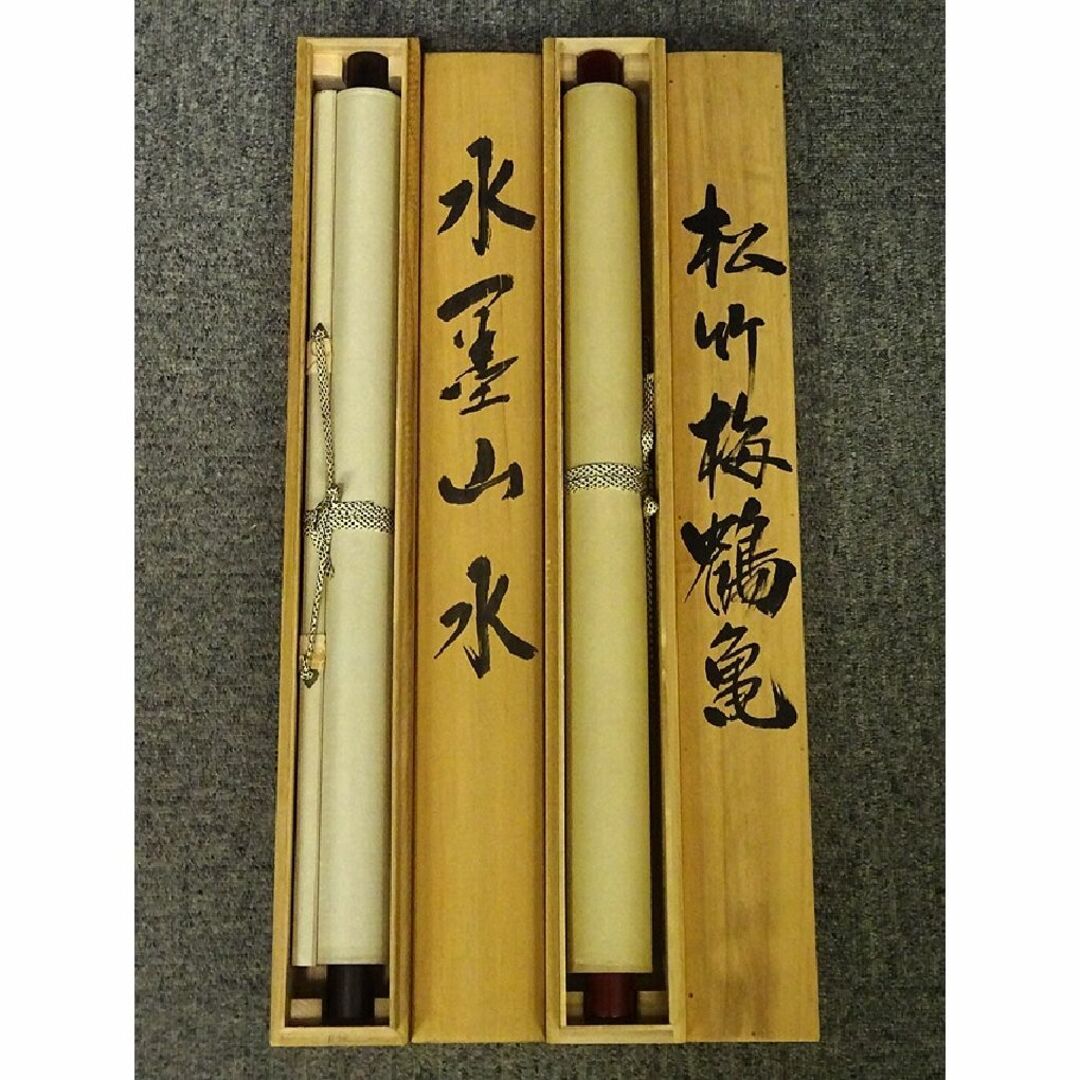 松竹梅鶴亀
水墨山水